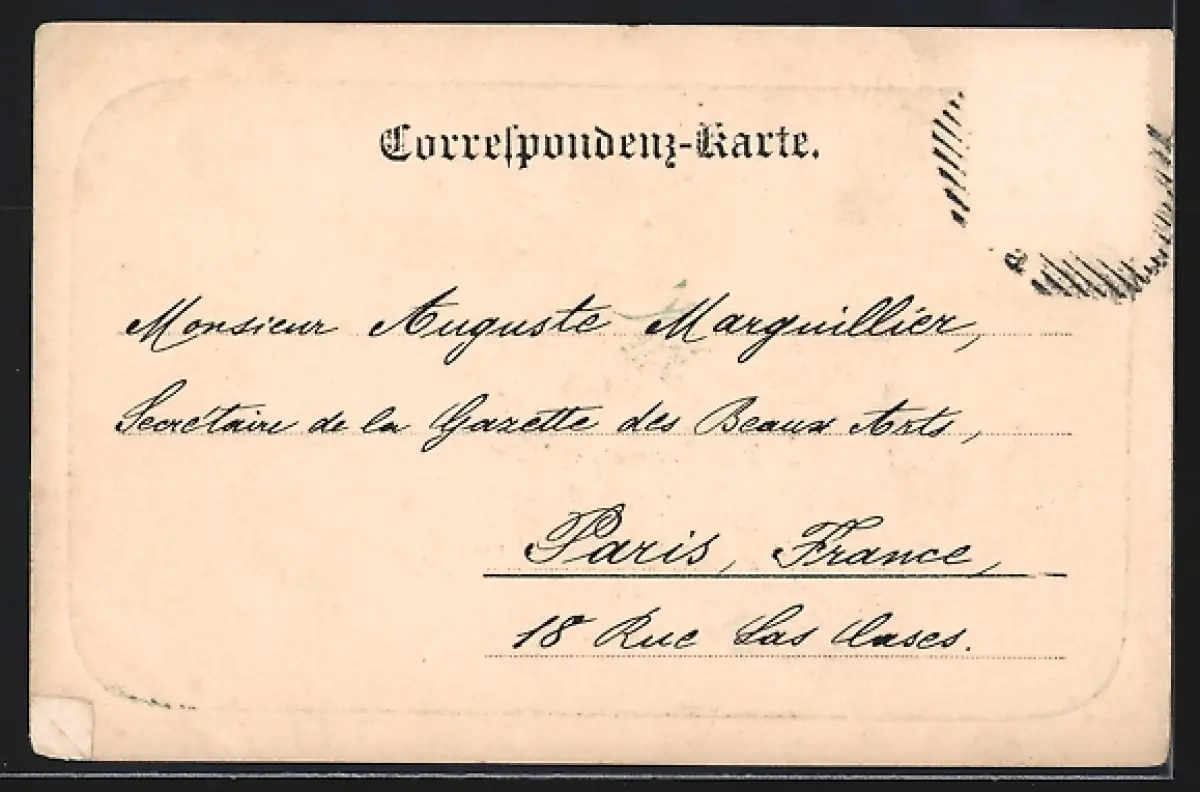 Correspondenz-Karte.
Monsieur Auguste Marguillier,
Secrétaire de la Gazette des Beaux Arts,
Paris, France,
18 Rue Las Cases.